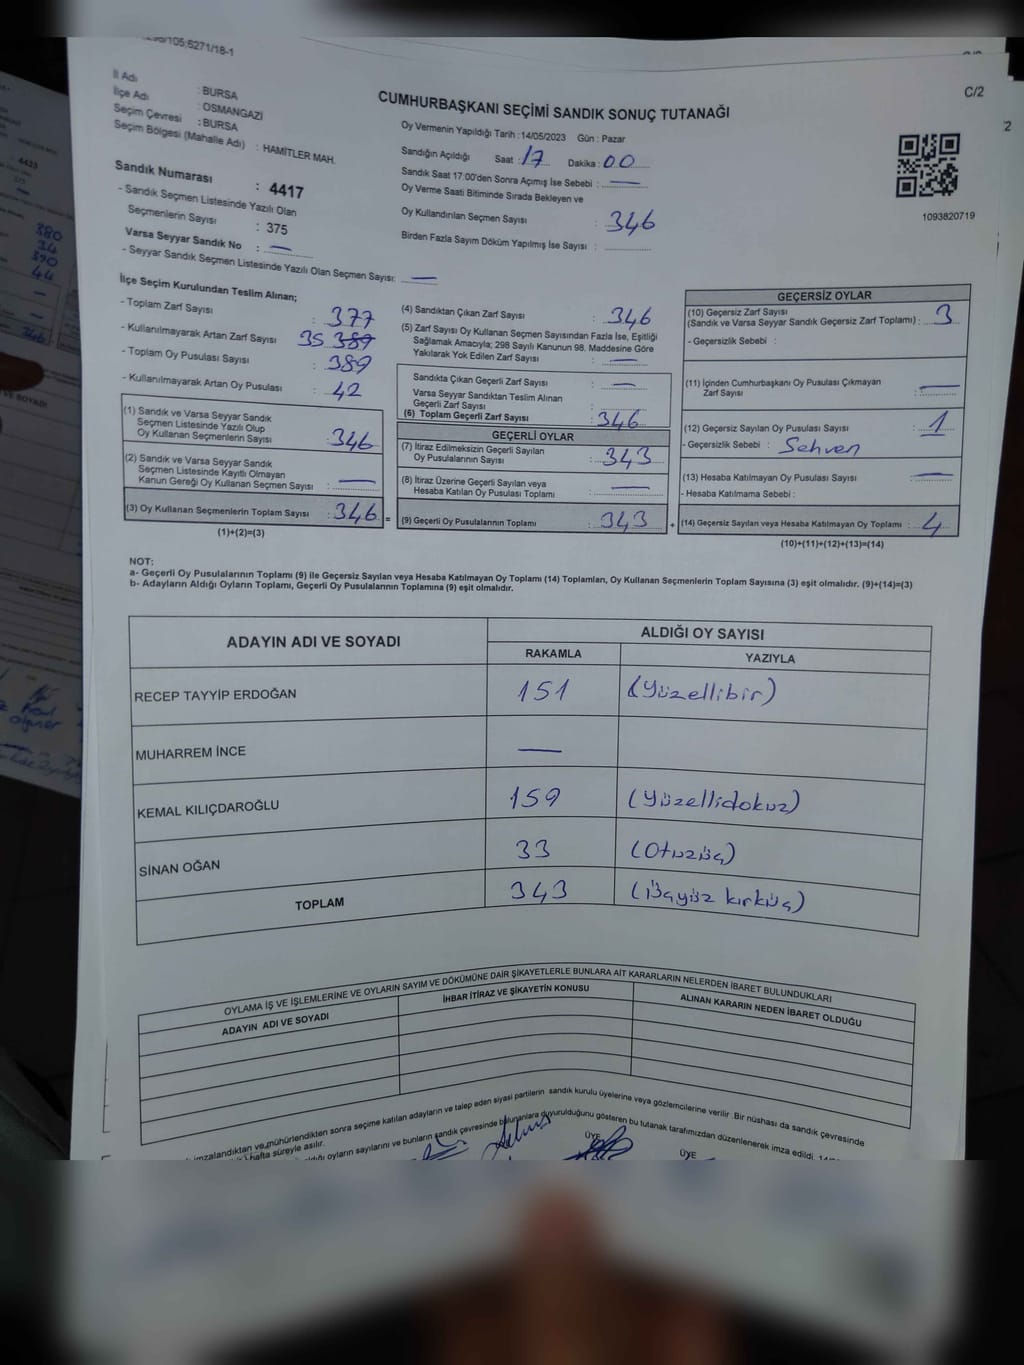 105;5271/18-1
C/2
İl Adı : BURSA
İlçe Adı : OSMANGAZİ
Seçim Çevresi : BURSA
Seçim Bölgesi (Mahalle Adı) : HAMİTLER MAH.
Sandık Numarası : 4417
- Sandık Seçmen Listesinde Yazılı Olan
Seçmenlerin Sayısı : 375
Varsa Seyyar Sandık No : —
- Seyyar Sandık Seçmen Listesinde Yazılı Olan Seçmen Sayısı: —
CUMHURBAŞKANI SEÇİMİ SANDIK SONUÇ TUTANAĞI
Oy Vermenin Yapıldığı Tarih :14/05/2023 Gün : Pazar
Sandığın Açıldığı Saat : 17 Dakika : 00
Sandık Saat 17:00'den Sonra Açımış İse Sebebi : —
Oy Verme Saati Bitiminde Sırada Bekleyen ve
Oy Kullandırılan Seçmen Sayısı : 346
Birden Fazla Sayım Döküm Yapılmış İse Sayısı :
1093820719
İlçe Seçim Kurulundan Teslim Alınan;
- Toplam Zarf Sayısı : 377
- Kullanılmayarak Artan Zarf Sayısı : 35 389
- Toplam Oy Pusulası Sayısı : 389
- Kullanılmayarak Artan Oy Pusulası : 42
(1) Sandık ve Varsa Seyyar Sandık
Seçmen Listesinde Yazılı Olup
Oy Kullanan Seçmenlerin Sayısı : 346
(2) Sandık ve Varsa Seyyar Sandık
Seçmen Listesinde Kayıtlı Olmayan
Kanun Gereği Oy Kullanan Seçmen Sayısı : —
(3) Oy Kullanan Seçmenlerin Toplam Sayısı : 346 =
(1)+(2)=(3)
(4) Sandıktan Çıkan Zarf Sayısı : 346
(5) Zarf Sayısı Oy Kullanan Seçmen Sayısından Fazla İse, Eşitliği
Sağlamak Amacıyla; 298 Sayılı Kanunun 98. Maddesine Göre
Yakılarak Yok Edilen Zarf Sayısı : —
Sandıkta Çıkan Geçerli Zarf Sayısı : —
Varsa Seyyar Sandıktan Teslim Alınan
Geçerli Zarf Sayısı :
(6) Toplam Geçerli Zarf Sayısı : 346
GEÇERLİ OYLAR
(7) İtiraz Edilmeksizin Geçerli Sayılan
Oy Pusulalarının Sayısı : 343
(8) İtiraz Üzerine Geçerli Sayılan veya
Hesaba Katılan Oy Pusulası Toplamı : —
(9) Geçerli Oy Pusulalarının Toplamı : 343 +
GEÇERSİZ OYLAR
(10) Geçersiz Zarf Sayısı
(Sandık ve Varsa Seyyar Sandık Geçersiz Zarf Toplamı) : 3
- Geçersizlik Sebebi :
(11) İçinden Cumhurbaşkanı Oy Pusulası Çıkmayan
Zarf Sayısı : —
(12) Geçersiz Sayılan Oy Pusulası Sayısı : 1
- Geçersizlik Sebebi : Sehven
(13) Hesaba Katılmayan Oy Pusulası Sayısı : —
- Hesaba Katılmama Sebebi :
(14) Geçersiz Sayılan veya Hesaba Katılmayan Oy Toplamı : 4
(10)+(11)+(12)+(13)=(14)
NOT:
a- Geçerli Oy Pusulalarının Toplamı (9) ile Geçersiz Sayılan veya Hesaba Katılmayan Oy Toplamı (14) Toplamları, Oy Kullanan Seçmenlerin Toplam Sayısına (3) eşit olmalıdır. (9)+(14)=(3)
b- Adayların Aldığı Oyların Toplamı, Geçerli Oy Pusulalarının Toplamına (9) eşit olmalıdır.
ADAYIN ADI VE SOYADI ALDIĞI OY SAYISI
RAKAMLA YAZIYLA
RECEP TAYYİP ERDOĞAN 151 (Yüzellibir)
MUHARREM İNCE —
KEMAL KILIÇDAROĞLU 159 (Yüzellidokuz)
SİNAN OĞAN 33 (Otuzüç)
TOPLAM 343 (Üçyüz kırküç)
OYLAMA İŞ VE İŞLEMLERİNE VE OYLARIN SAYIM VE DÖKÜMÜNE DAİR ŞİKAYETLERLE BUNLARA AİT KARARLARIN NELERDEN İBARET BULUNDUKLARI
ADAYIN ADI VE SOYADI İHBAR İTİRAZ VE ŞİKAYETİN KONUSU ALINAN KARARIN NEDEN İBARET OLDUĞU
imzalandıktan ve mühürlendikten sonra seçime katılan adayların ve talep eden siyasi partilerin sandık kurulu üyelerine veya gözlemcilerine verilir. Bir nüshası da sandık çevresinde
hafta süreyle asılır.
oyların sayılarını ve bunların sandık çevresinde duyurulduğunu gösteren bu tutanak tarafımızdan düzenlenerek imza edildi.
ÜYE ÜYE
380
34
390
44
346